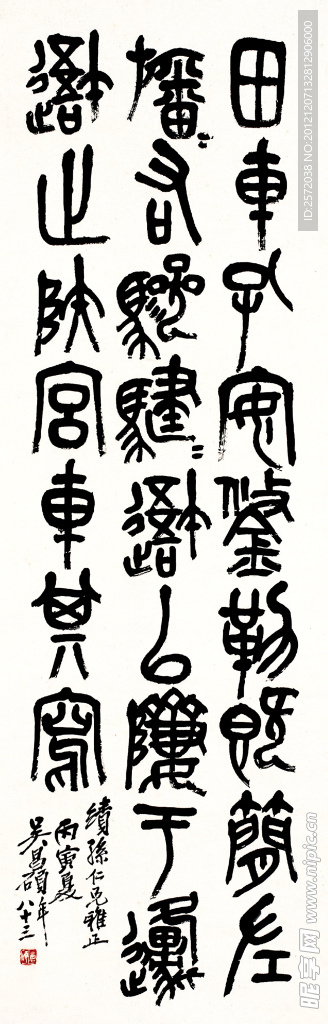 田車孔安鋚勒既簡左
旛=右驂騝=䢩以隮于邍
䢩止陝宮車其寫
績孫仁兄雅正
丙寅夏
吳昌碩年八十三
ID:2572038 NO:20121207132812906000
昵享网 www.nipic.cn